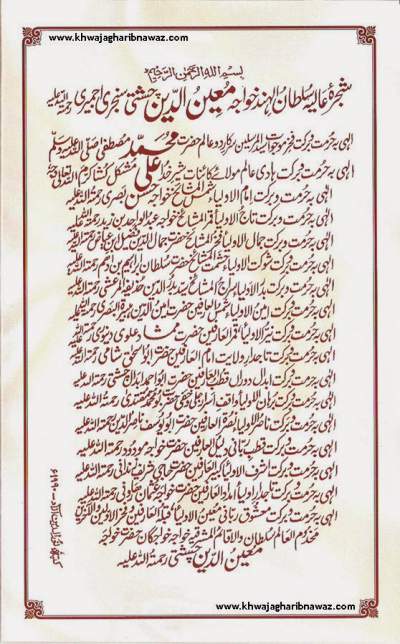 www.khwajagharibnawaz.com
بسم الله الرحمن الرحيم
شجرۂ عالیہ سلطان الہند خواجہ معین الدین چشتی سنجری اجمیری رحمۃ اللہ علیہ
الٰہی بہ حرمت و برکت فخر موجودات سید المرسلین سرکار دو عالم حضرت محمد مصطفٰی صلی اللہ علیہ وسلم
الٰہی بہ حرمت و برکت ہادی عالم مولائے کائنات شیر خدا علی مشکل کشا
الٰہی بہ حرمت و برکت امام الاولیاء شمس المشائخ خواجہ حسن بصری رحمۃ اللہ علیہ
الٰہی بہ حرمت و برکت تاج الاولیاء قمر المشائخ خواجہ عبد الواحد بن زید رحمۃ اللہ علیہ
الٰہی بہ حرمت و برکت جمال الاولیاء فخر المشائخ حضرت جمال الدین فضیل بن عیاض رحمۃ اللہ علیہ
الٰہی بہ حرمت و برکت شوکت الاولیاء حشمت المشائخ حضرت سلطان ابراہیم بن ادہم رحمۃ اللہ علیہ
الٰہی بہ حرمت و برکت بدر الاولیاء سراج المشائخ سدید الدین حذیفہ المرعشی رحمۃ اللہ علیہ
الٰہی بہ حرمت و برکت امین الاولیاء العارفین حضرت امین الدین ہبیرۃ البصری رحمۃ اللہ علیہ
الٰہی بہ حرمت و برکت الاولیاء قمر العارفین حضرت ممشاد علوی دینوری رحمۃ اللہ علیہ
الٰہی بہ حرمت و برکت تاجدار ولایت امام العارفین حضرت ابو اسحٰق شامی رحمۃ اللہ علیہ
الٰہی بہ حرمت و برکت ابدال دوراں قطب العارفین حضرت ابو احمد ابدال چشتی رحمۃ اللہ علیہ
الٰہی بہ حرمت و برکت برہان الاولیاء واقف حضرت ابو محمد رحمۃ اللہ علیہ
الٰہی بہ حرمت و برکت ناصر الاولیاء نصرۃ العارفین حضرت ابو یوسف ناصر الدین رحمۃ اللہ علیہ
الٰہی بہ حرمت و برکت قطب ربانی دلیل العارفین حضرت خواجہ مودود رحمۃ اللہ علیہ
الٰہی بہ حرمت و برکت اشرف الاولیاء العارفین حضرت حاجی شریف زندانی رحمۃ اللہ علیہ
الٰہی بہ حرمت و برکت تاجدار اولیاء العارفین حضرت خواجہ عثمان ہارونی رحمۃ اللہ علیہ
الٰہی بہ حرمت و برکت معشوق ربانی معین الاولیاء العارفین و فخر الاولین و الآخرین
مخدوم العالم سلطان والاقالیم المشرقیہ خواجہ خواجگان حضرت خواجہ
معین الدین چشتی رحمۃ اللہ علیہ
www.khwajagharibnawaz.com